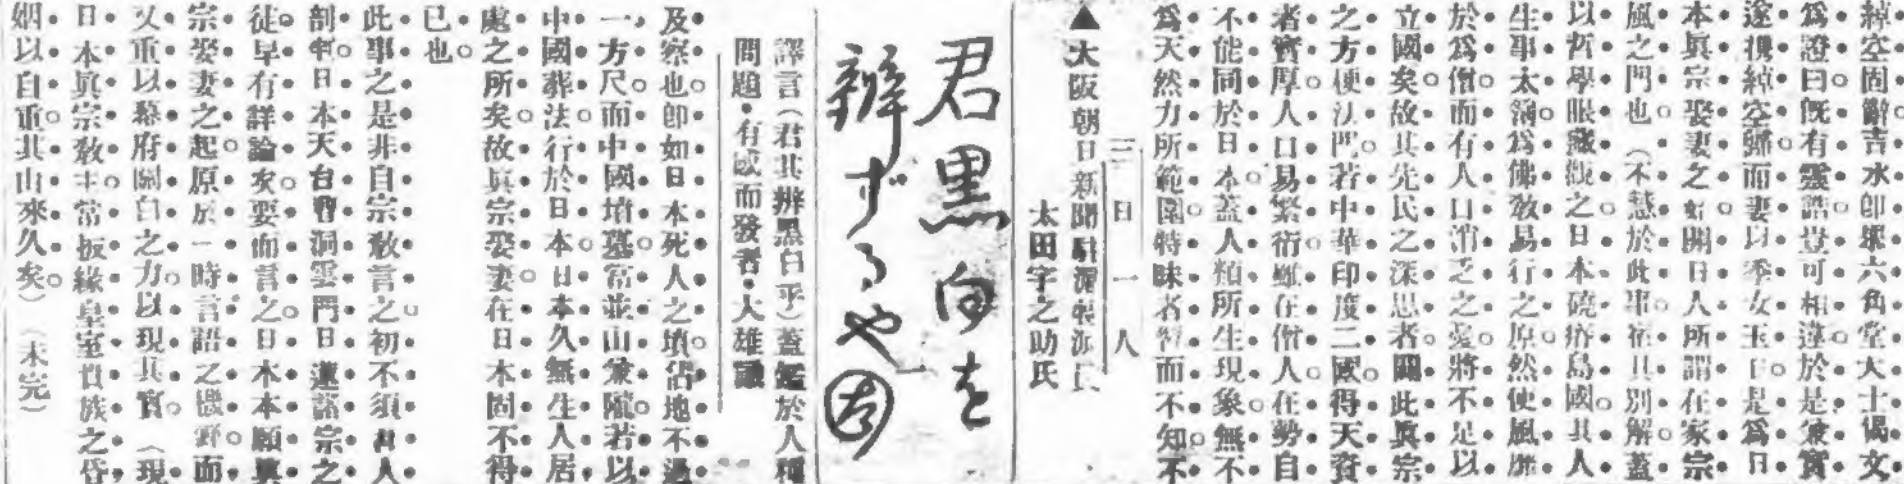 綽空固辭吉水卽舉六角堂大士偈文
爲證曰旣有靈誥豈可相違於是兼實
遂携綽空歸而妻以季女玉日是爲日
本眞宗娶妻之始開日人所謂在家宗
風之門也(不慧於此事宿具別解蓋
以哲學眼藏觀之日本磽瘠島國其人
生事太觕爲佛敎易行之原然使風靡
於爲僧而有人口消乏之憂將不足以
立國矣故其先民之深思者闢此眞宗
之方便法門若中華印度二國得天資
者實厚人口易繁衍雖在僧人在勢自
不能同於日本蓋人類所生現象無不
爲天然力所範圍特昧者習而不知不
三日一人
▲大阪朝日新聞駐滬特派員
太田宇之助氏
君黑白を
辨ずるや 太
譯言(君其辨黑白乎)蓋鑑於人種
問題有感而發者大雄識
及察也卽如日本死人之墳佔地不過
一方尺而中國墳墓常並山兼隴若以
中國葬法行於日本日本久無生人居
處之所矣故眞宗娶妻在日本固不得
已也
此事之是非自宗敎言之初不須日人
剖 日本天台曹洞雲門日蓮諸宗之
徒早有詳論矣要而言之日本本願眞
宗娶妻之起原於一時言語之機鋒而
又重以幕府關白之力以現其實(現
日本眞宗敎主常扳緣皇室貴族之昏
姻以自重其由來久矣)(未完)